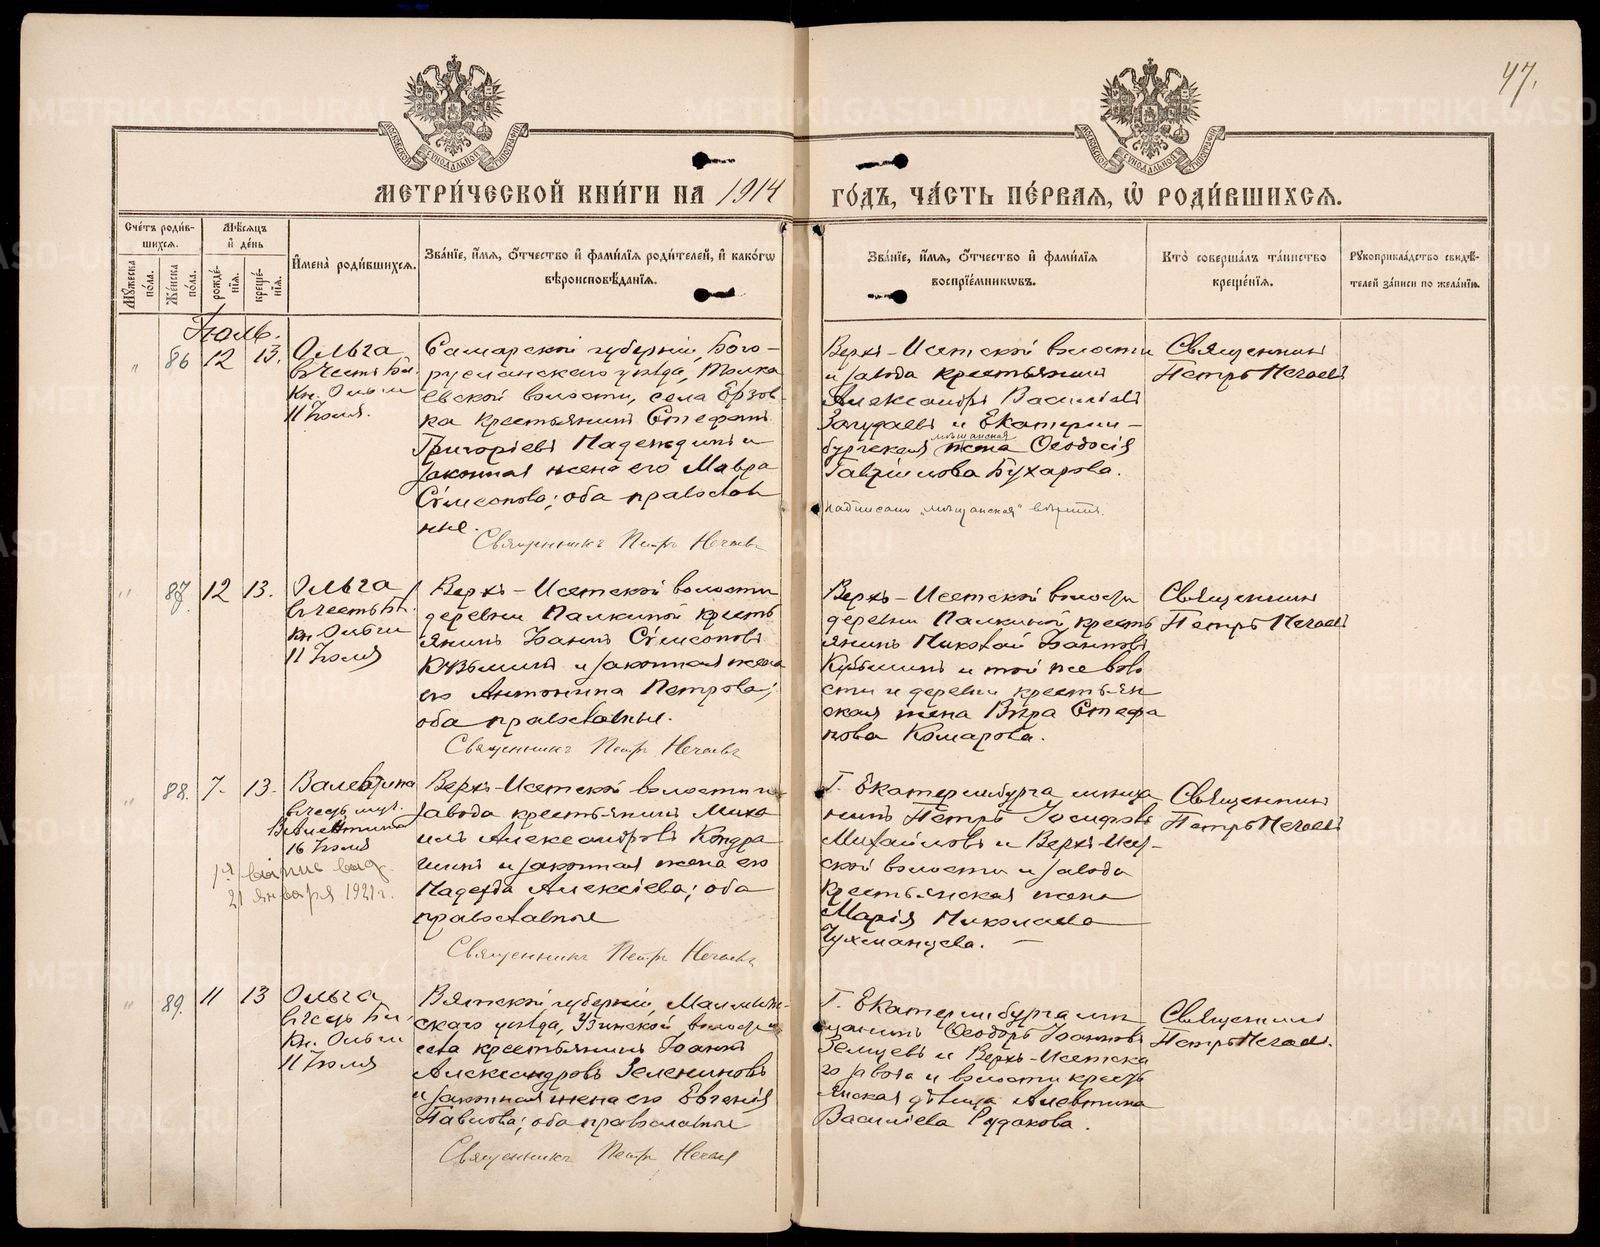 47.
МОСКОВСКОЙ СУНОДАЛЬНОЙ ТИПОГРАФIИ
МОСКОВСКОЙ СУНОДАЛЬНОЙ ТИПОГРАФIИ
МЕТРИ́ЧЕСКОЙ КНИ́ГИ НА 1914 ГО́ДЪ, ЧА́СТЬ ПЕ́РВАЯ, Ѡ РОДИ́ВШИХСЯ.
Сче́тъ роди́в-
шихся.
Му́жеска по́ла.
Же́нска по́ла.
Мѣ́сяцъ
и де́нь
рожде́-
нїя.
креще́-
нїя.
Имена̀ роди́вшихся.
Зва́нїе, и́мя, о́тчество и фами́лїя роди́телей, и како́гѡ
вѣроисповѣ́данїя.
Зва́нїе, и́мя, о́тчество и фами́лїя
воспрїе́мникѡвъ.
Кто̀ соверша́лъ та́инство
креще́нїя.
Рꙋкоприкла́дство свидѣ́-
телей за́писи по жела́нїю.
Іюль.
" 86 12 13.
Ольга
въ честь Бл.
Кн. Ольги
11 Іюля.
Самарской губерніи, Бого-
русланскаго уѣзда, Толка
евской волости, села Ерзов-
ка крестьянинъ Стефанъ
Григоріевъ Надеждинъ и
законная жена его Мавра
Сѵмеонова; оба православ
ные.
Священникъ Петръ Нечаевъ
Верхъ-Исетской волости
и завода крестьянинъ
Александръ Василіевъ
Загудаевъ и Екатерин-
бургская мѣщанская жена Ѳеодосія
Гавріилова Бухарова.
надписано „мѣщанская" вѣрить.
Священникъ
Петръ Нечаевъ
" 87. 12 13.
Ольга
въ честь Бл.
Кн. Ольги
11 Іюля
Верхъ-Исетской волости
деревни Палкиной кресть
янинъ Іоаннъ Сѵмеоновъ
Кузьминъ и законная жена
его Антонина Петрова;
оба православные.
Священникъ Петръ Нечаевъ
Верхъ-Исетской волости
деревни Палкиной кресть
янинъ Николай Іоанновъ
Кузьминъ и той же воло
сти и деревни крестьян
ская жена Вѣра Стефа
нова Комарова.
Священникъ
Петръ Нечаевъ
" 88. 7. 13.
Валентина
въ честь муч.
Валентина
16 Іюля
1я выпись выд.
21 января 1921 г.
Верхъ-Исетской волости и
завода крестьянинъ Миха
илъ Александровъ Кондра
шинъ и законная жена его
Надежда Алексіева; оба
православные
Священникъ Петръ Нечаевъ
Г. Екатеринбурга мѣща
нинъ Петръ Іосифовъ
Михайловъ и Верхъ-Исет-
ской волости и завода
крестьянская жена
Марія Николаева
Чухманцева.
Священникъ
Петръ Нечаевъ
" 89. 11 13
Ольга
въ честь Бл.
Кн. Ольги
11 Іюля
Вятской губерніи, Малмыж-
скаго уѣзда, Узинской волости
села крестьянинъ Іоаннъ
Александровъ Зеленинъ
и законная жена его Евгенія
Павлова; оба православные
Священникъ Петръ Нечаевъ
Г. Екатеринбурга мѣ
щанинъ Ѳеодоръ Іоанновъ
Земцевъ и Верхъ-Исетска
го завода и волости кресть
янская дѣвица Алевтина
Василіева Рудакова.
Священникъ
Петръ Нечаевъ.
METRIKI.GASO-URAL.RU